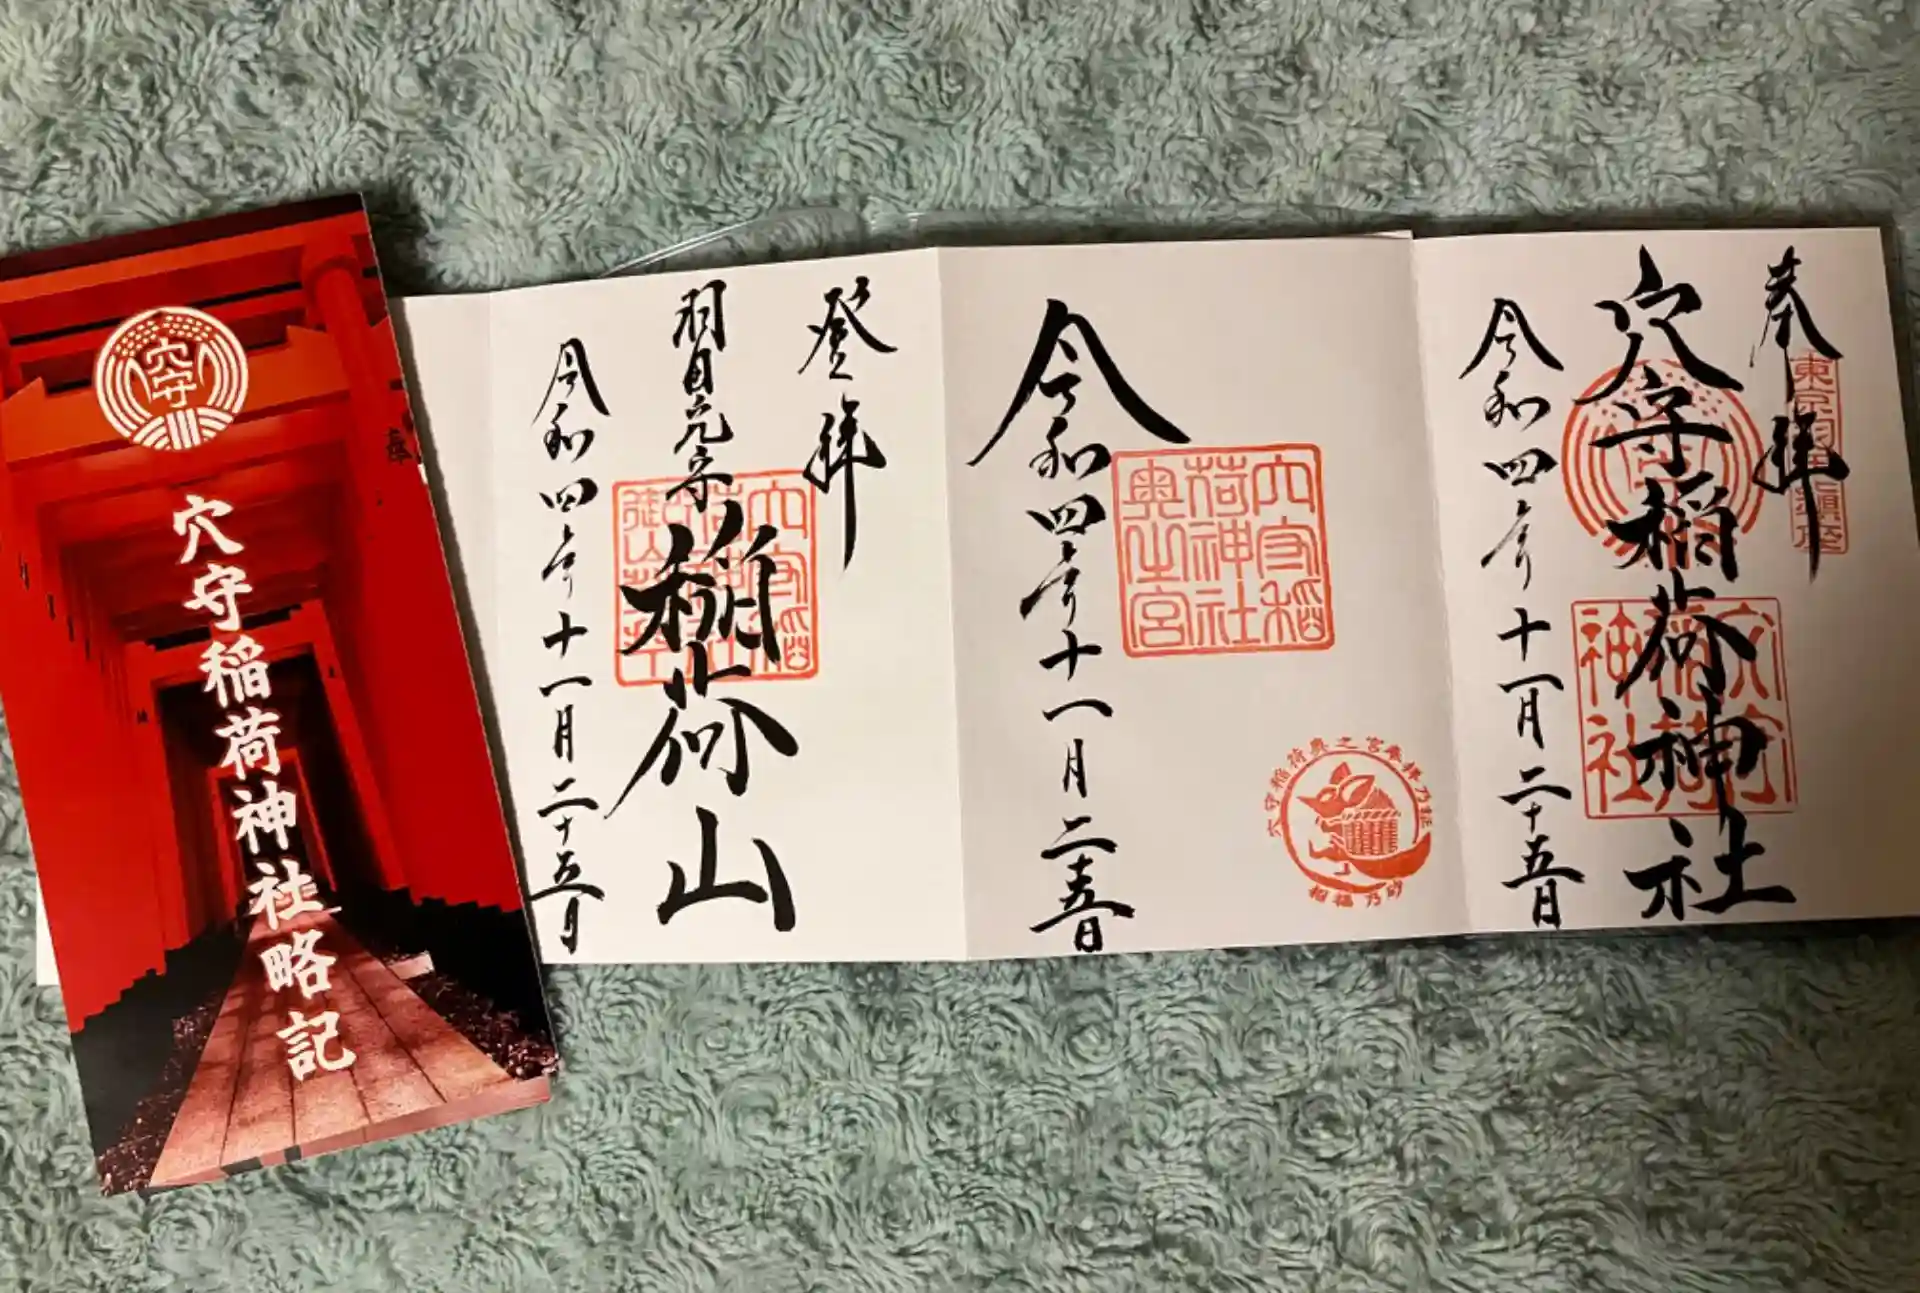 奉拝
東京羽田鎮座
穴守稲荷神社
穴守
穴守稲荷神社
令和四年十一月二十五日
穴守稲荷神社奥之宮
穴守稲荷奥之宮奉拝乃証
招福乃砂
令和四年十一月二十五日
登拝
稲荷山
令和四年十一月二十五日
穴守
穴守稲荷神社略記